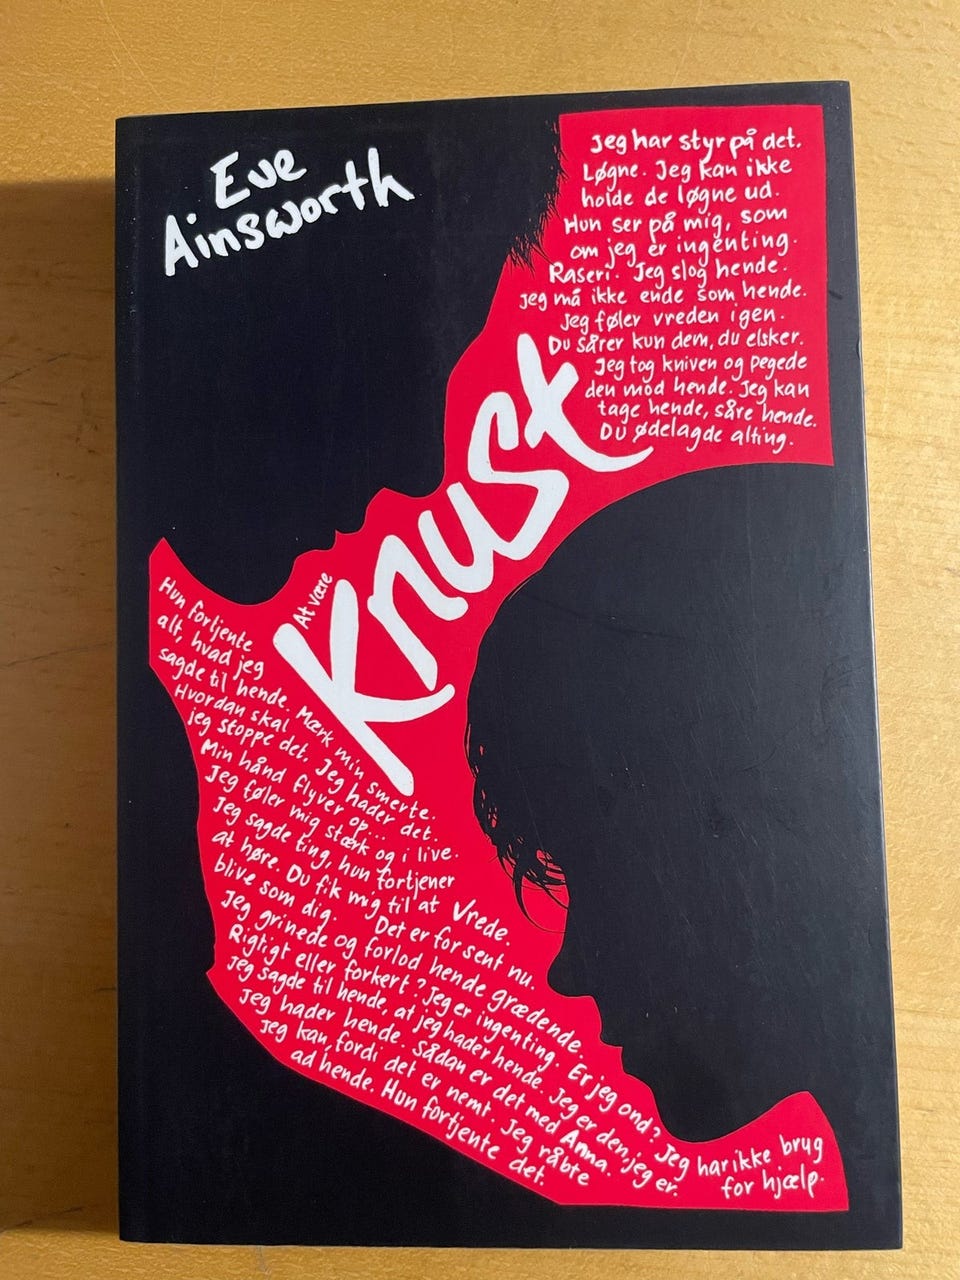 Eve
Ainsworth
Jeg har styr på det.
Løgne. Jeg kan ikke
holde de løgne ud.
Hun ser på mig, som
om jeg er ingenting.
Raseri. Jeg slog hende.
Jeg må ikke ende som hende.
Jeg føler vreden igen.
Du sårer kun dem, du elsker.
Jeg tog kniven og pegede
den mod hende. Jeg kan
tage hende, såre hende.
Du ødelagde alting.
At være
Knust
Hun fortjente
alt, hvad jeg
sagde til hende. Mærk min smerte.
Hvordan skal
jeg stoppe det. Jeg hader det.
Min hånd flyver op...
Jeg føler mig stærk og i live.
Jeg sagde ting, hun fortjener
at høre. Du fik mig til at Vrede.
blive som dig. Det er for sent nu.
Jeg grinede og forlod hende grædende.
Rigtigt eller forkert? Jeg er ingenting. Er jeg ond?
Jeg sagde til hende, at jeg hader hende. Jeg er den, jeg er.
Jeg hader hende. Sådan er det med Anna.
Jeg kan, fordi det er nemt. Jeg råbte
ad hende. Hun fortjente det.
Jeg har ikke brug
for hjælp.